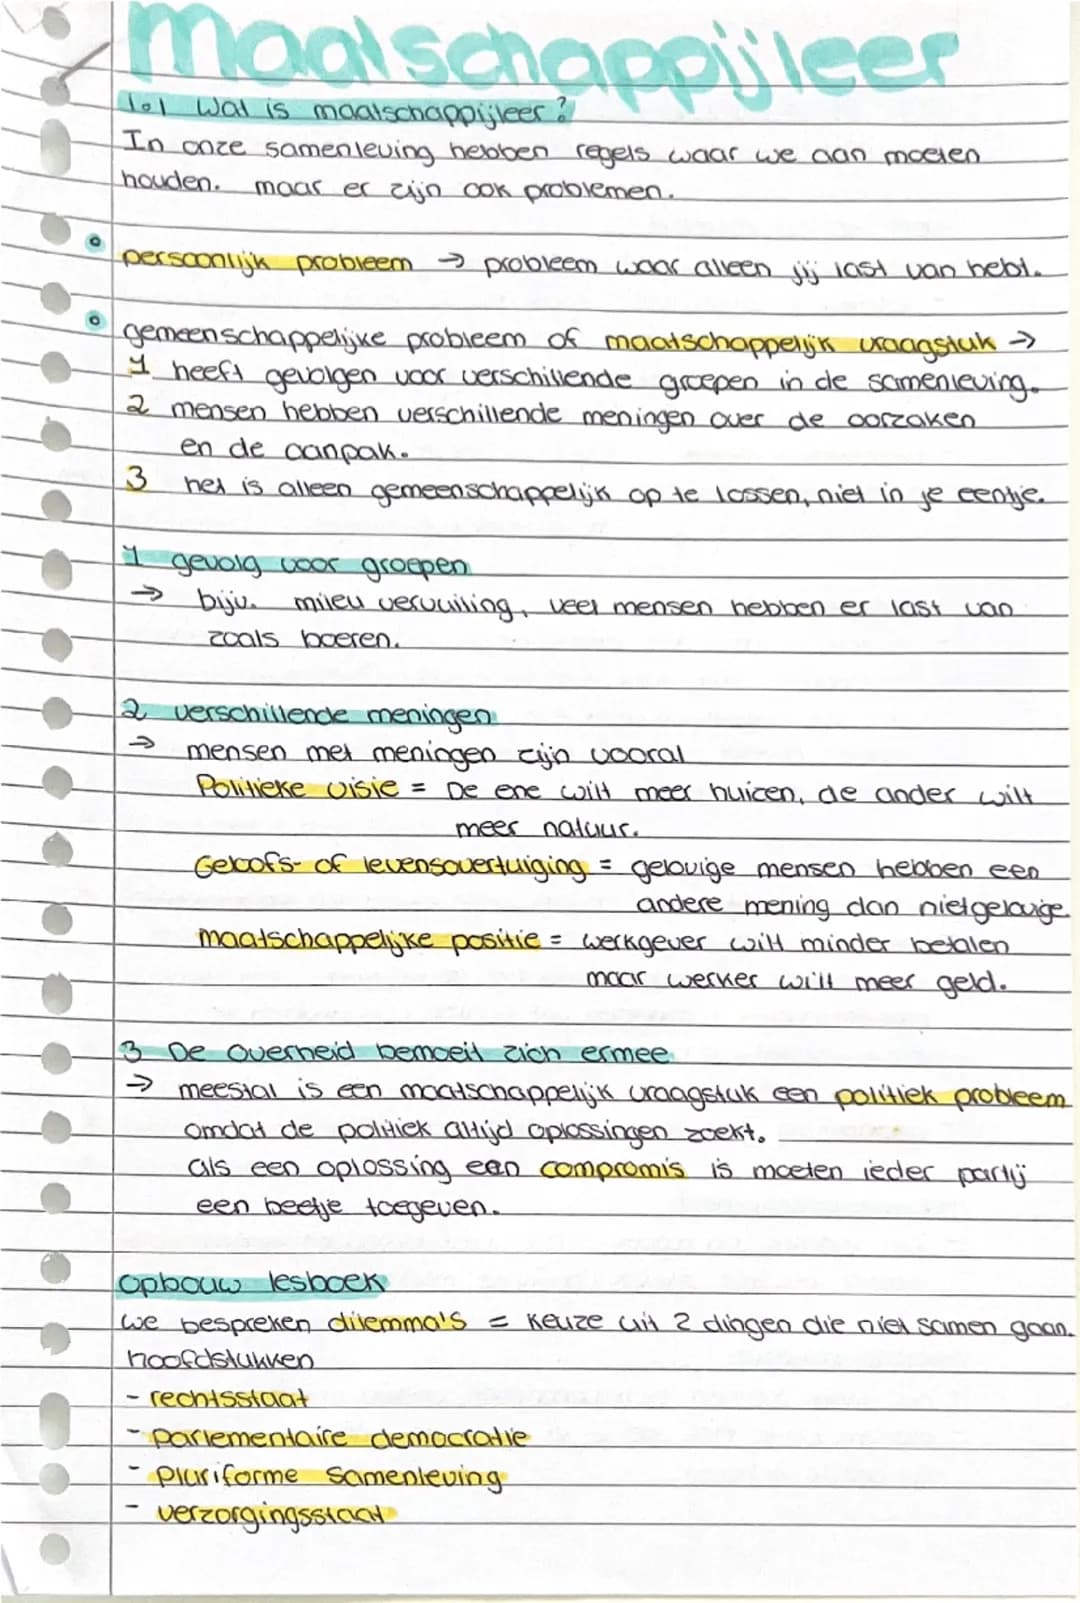 maatschappijleer
1.1 Wat is maatschappijleer?
In onze samenleving hebben regels waar we aan moeten
houden. maar er zijn ook problemen.
persoonlijk probleem → probleem waar alleen jij last van hebt.
gemeenschappelijke probleem of maatschappelijk vraagstuk →
1 heeft gevolgen voor verschillende groepen in de samenleving.
2 mensen hebben verschillende meningen over de oorzaken
en de aanpak.
3 het is alleen gemeenschappelijk op te lossen, niet in je eentje.
1 gevolg voor groepen
→ bijv. milieu vervuiling, veel mensen hebben er last van
zoals boeren.
2 verschillende meningen
→ mensen met meningen zijn vooral
Politieke visie = De ene wilt meer huizen, de ander wilt
meer natuur.
Geloofs- of levensovertuiging = gelovige mensen hebben een
andere mening dan nietgelovige.
maatschappelijke positie = werkgever wilt minder betalen
maar werker wilt meer geld.
3 De overheid bemoeit zich ermee
→ meestal is een maatschappelijk vraagstuk een politiek probleem
omdat de politiek altijd oplossingen zoekt.
als een oplossing een compromis is moeten ieder partij
een beetje toegeven.
opbouw lesboek
we bespreken dilemma's = keuze uit 2 dingen die niet samen gaan.
hoofdstukken
- rechtsstaat
- parlementaire democratie
- Pluriforme samenleving
- verzorgingsstaat